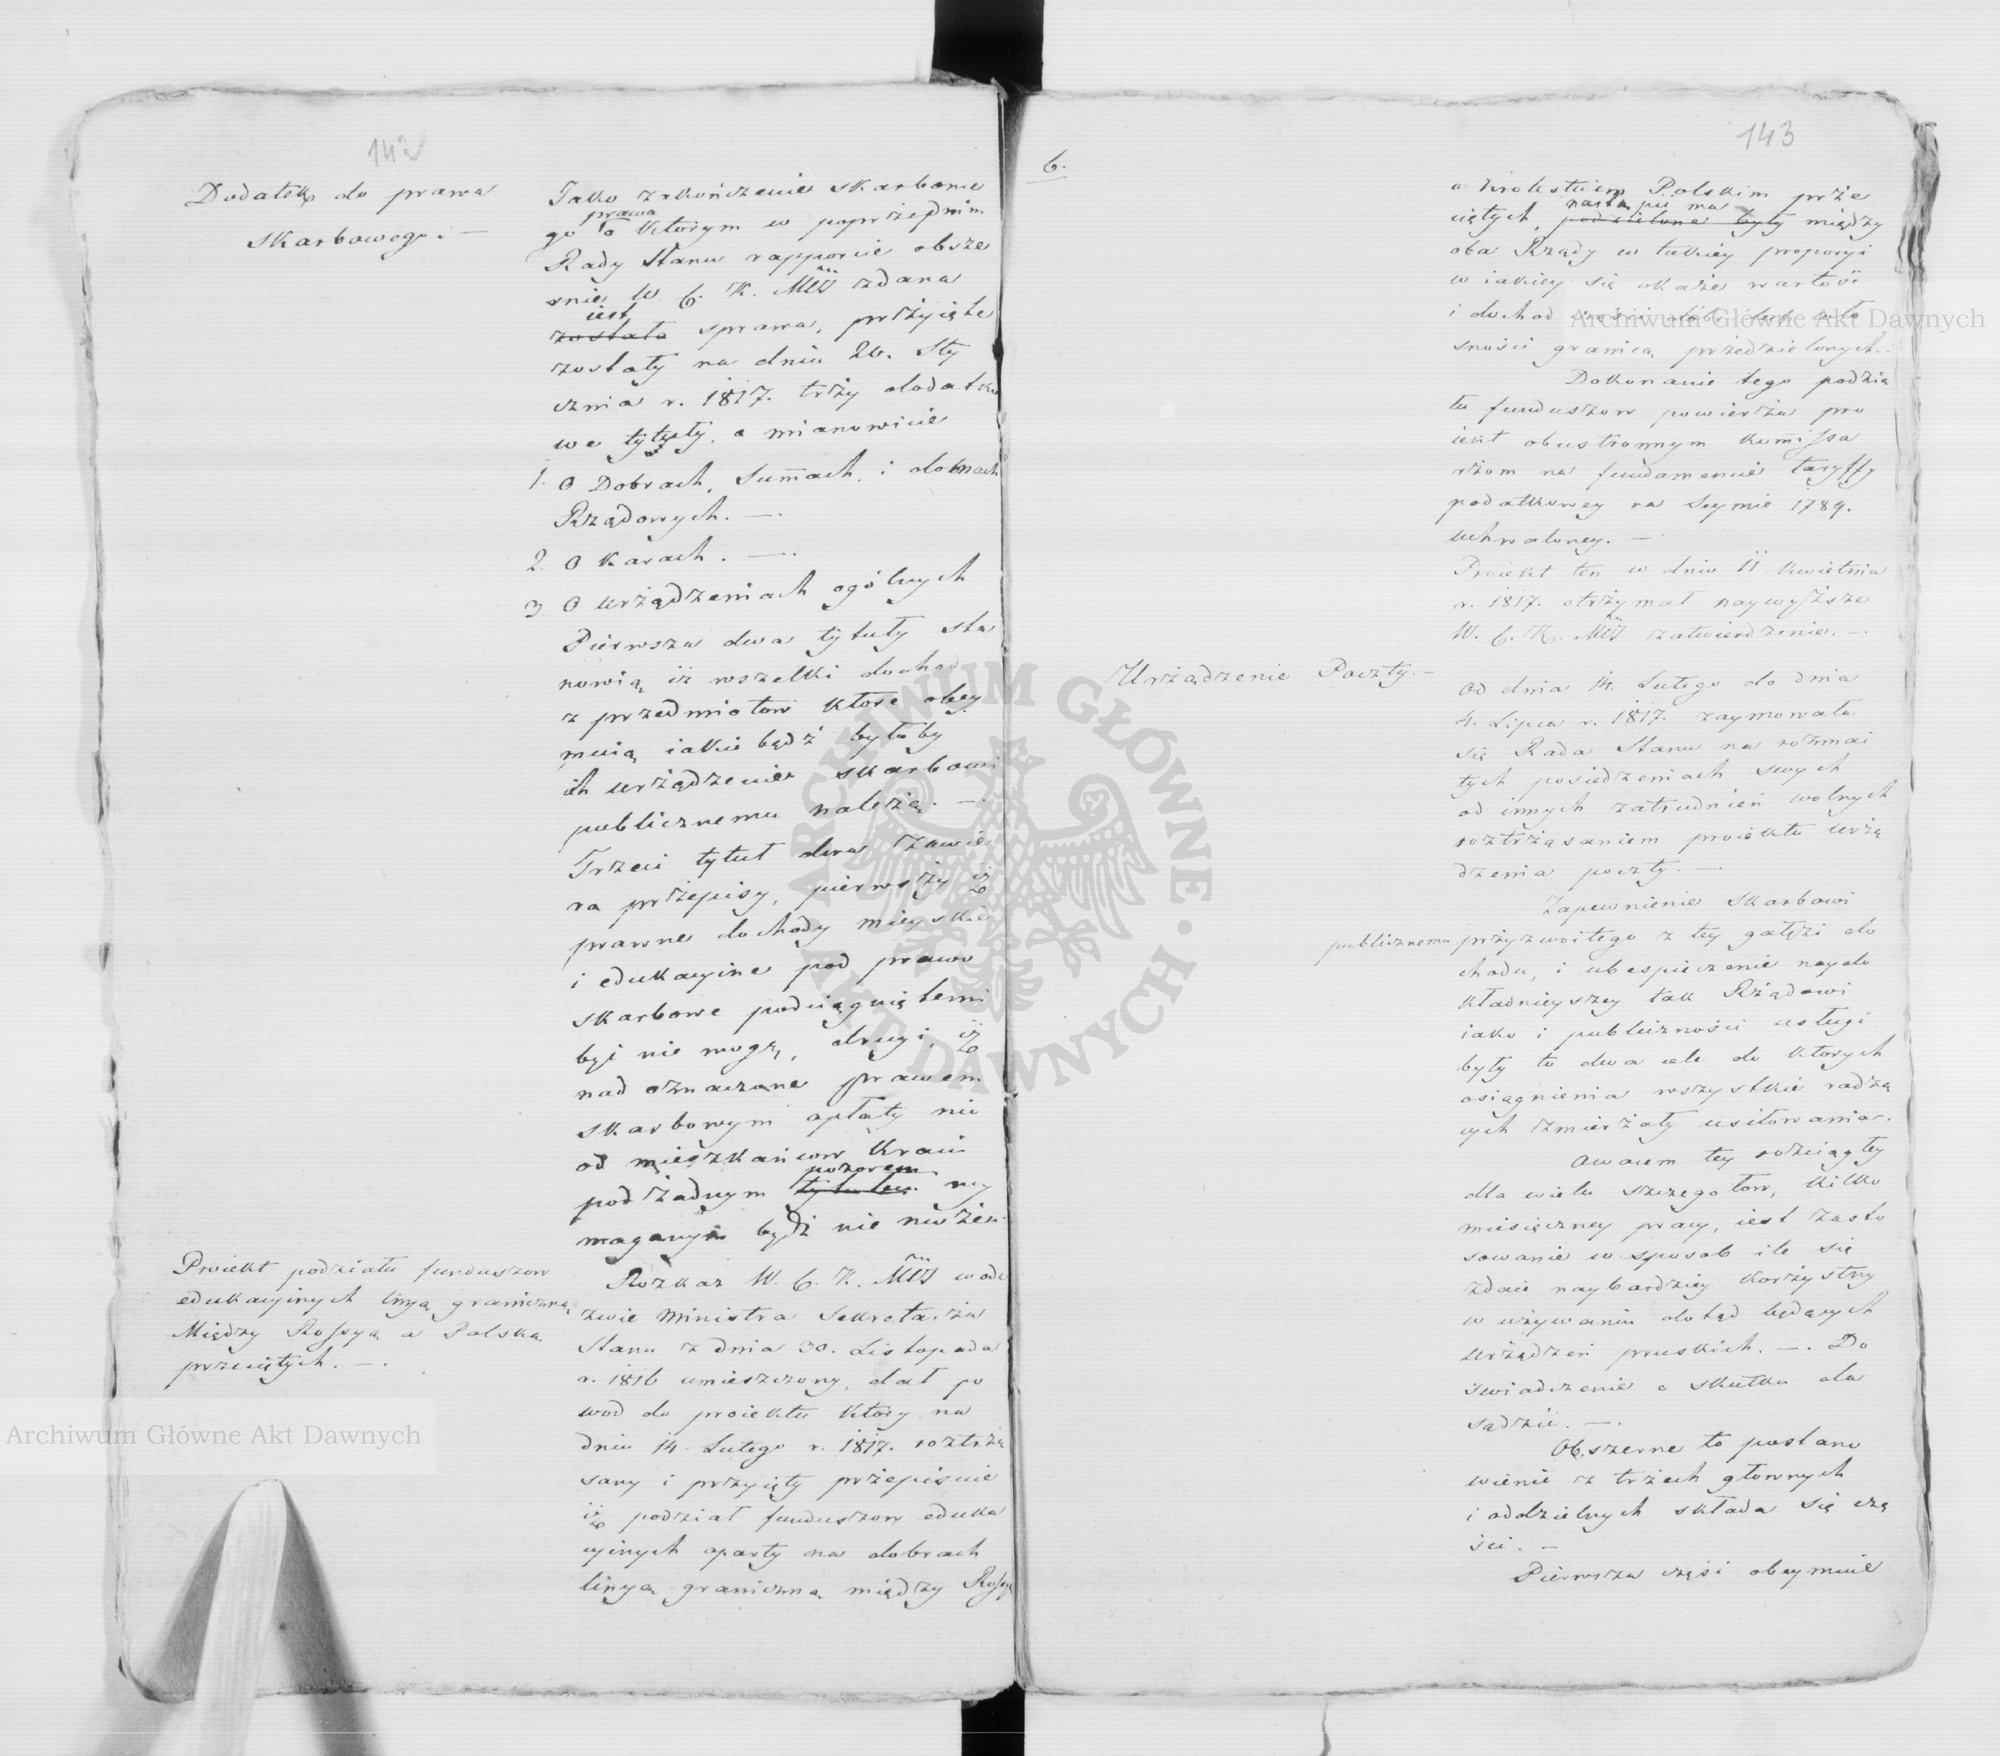 142
Dodatek do prawa
skarbowego. —
Jako zakończenie skarbowe
prawa
go o którym w poprzednim
Rady Stanu rapporcie obsze
rnie W. C. K. Mci zdana
jest
została sprawa, przyięte
zostały na dniu 26. Sty
cznia r. 1817. trzy dodatko
we tytuły, a mianowicie
1. O Dobrach, Summach, i dobrach
Rządowych. —
2. O karach. —
3. O urządzeniach ogólnych
Pierwsze dwa tytuły sta
nowią iż wszelki dochod
z przedmiotow które obey
muią iakie bądź byłoby
ich urządzenie skarbowi
publicznemu należą. —
Trzeci tytuł dwa zawie
ra przepisy, pierwszy iż
prawne dochody mieyskie
i edukacyine pod prawo
skarbowe podciągniętemi
być nie mogą, drugi, iż
nad oznaczone prawem
skarbowym opłaty nic
od mieszkańcow Kraiu
pozorem
pod żadnym tytułem wy
maganym bydź nie może.
Proiekt podziału funduszow
edukacyinych linyą graniczną
Między Rossyą a Polską
przeciętych. —
Rozkaz W. C. K. Mci w ode
zwie Ministra Sekretarza
Stanu z dnia 30. Listopada
r. 1816 umieszczony, dał po
wod do proiektu który na
dniu 14. Lutego r. 1817. roztrzą
sany i przyięty przepisuie
iż podział funduszow eduka
cyinych oparty na dobrach
linyą graniczną między Rossyą
6.
143
a Krolestwem Polskim prze
nastąpić ma
ciętych, podzielone były między
oba Rządy w takiey proporcyi
w iakiey się okaże wartość
i dochod
sności granicą przedzielonych.
Dokonanie tego podzia
łu funduszow powierza pro
iekt obustronnym kommissa
rzom na fundamencie taryffy
podatkowey na Seymie 1789.
uchwaloney. —
Proiekt ten w dniu 11 kwietnia
r. 1817. otrzymał naywyższe
W. C. K. Mci zatwierdzenie. —
Urządzenie Poczty. —
Od dnia 14. Lutego do dnia
4. Lipca r. 1817. zaymowała
się Rada Stanu na rozmai
tych posiedzeniach swych
od innych zatrudnień wolnych
roztrząsaniem proiektu urzą
dzenia poczty. —
Zapewnienie Skarbowi
publicznemu przyzwoitego z tey gałęzi do
chodu, i ubespieczenie naydo
kładnieyszey tak Rządowi
iako i publiczności usługi
były to dwa cele do ktorych
osiągnienia wszystkie radzą
cych zmierzały usiłowania.
Owocem tey rozciągłey
dla wielu szczegołow, kilko
miesięczney pracy, iest zasto
sowanie w sposob ile się
zdaie naybardziey korzystny
w używaniu dotąd będących
urządzeń pruskich. —. Do
świadczenie o skutku da
sądzić. —
Obszerne to postano
wienie z trzech głownych
i oddzielnych składa się czę
ści. —
Pierwsza część obeymuie
Archiwum Główne Akt Dawnych
Archiwum Główne Akt Dawnych
ARCHIWUM GŁÓWNE · AKT DAWNYCH ·